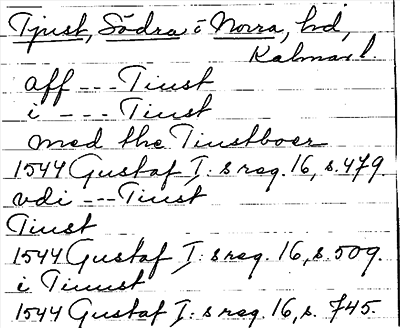 Tjust, Södra o Norra, hd,
Kalmar l.
aff --- Tiust
i --- Tiust
med the Tiustboer
1544 Gustaf I:s reg. 16, s. 479.
vdi --- Tiust
Tiust
1544 Gustaf I:s reg. 16, s. 509.
i Tiuust
1544 Gustaf I:s reg. 16, s. 745.